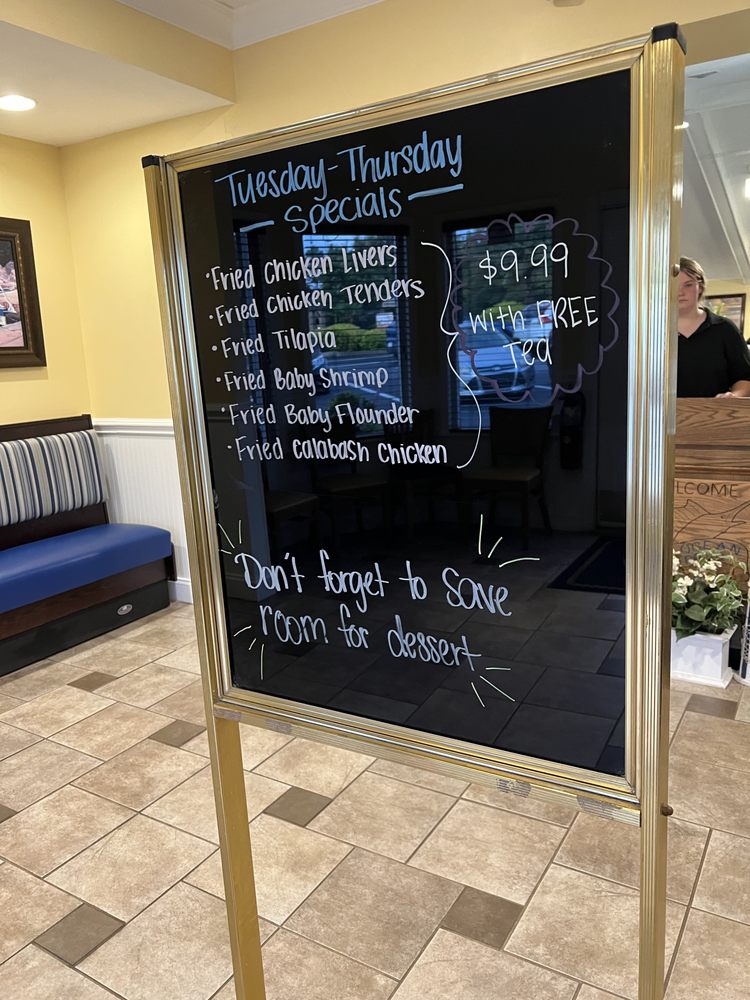 Tuesday-Thursday
- Specials -
• Fried Chicken Livers
• Fried Chicken Tenders
• Fried Tilapia
• Fried Baby Shrimp
• Fried Baby Flounder
• Fried Calabash Chicken
$9.99
with FREE
Tea
Don't forget to save
room for dessert
LCOME
OCEAN